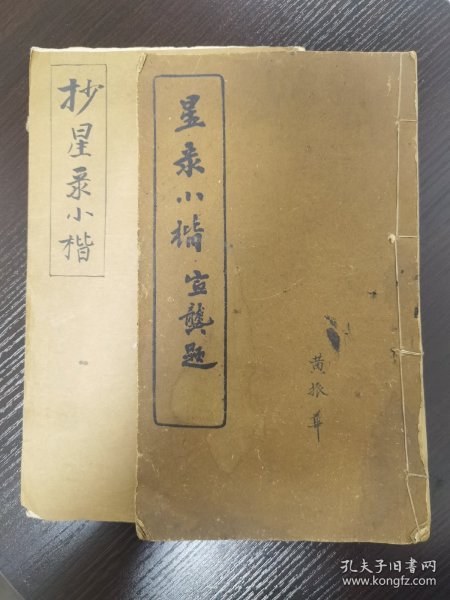 抄星录小楷
星录小楷 宣龚题
黄振华
孔夫子旧书网
www.kongfz.com